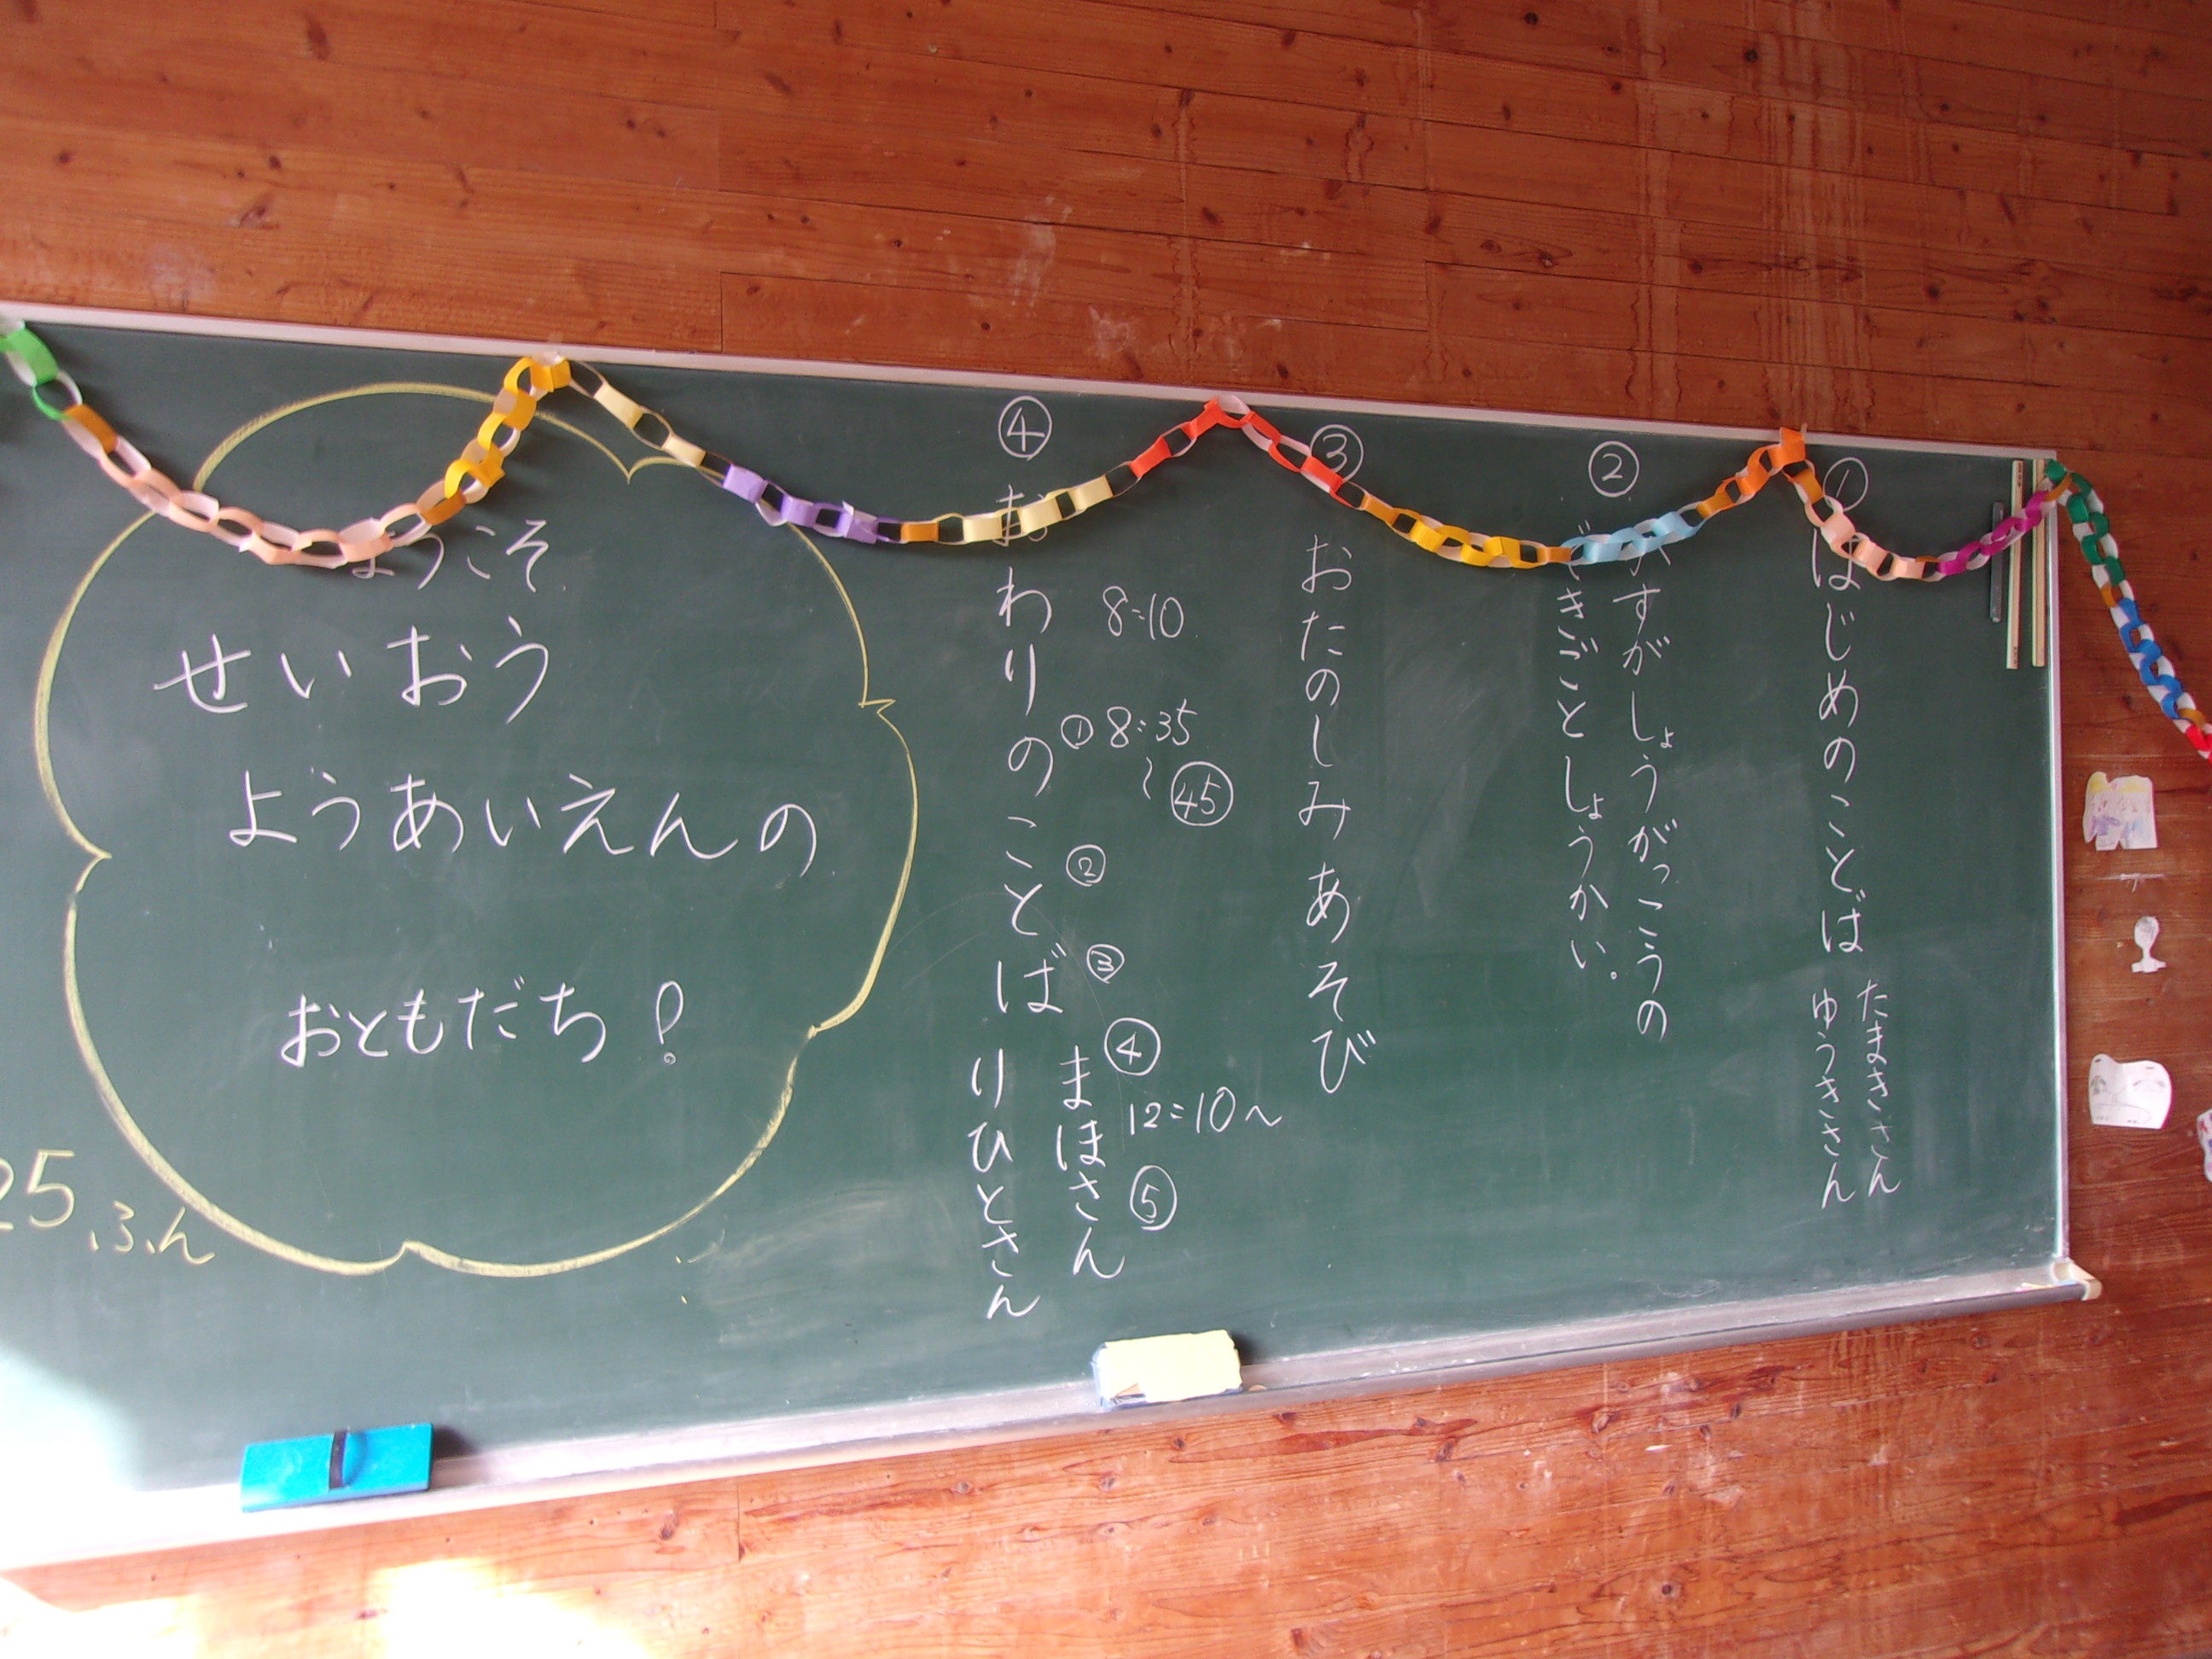 ①
はじめのことば
たまきさん
ゆうきさん
②
すがしょうがっこうの
できごとしょうかい。
③
おたのしみあそび
④
おわりのことば
まほさん
りひとさん
8:10
① 8:35
~ ㊺
②
③
④
12:10~
⑤
ようこそ
せいおう
ようあいえんの
おともだち!
25ふん